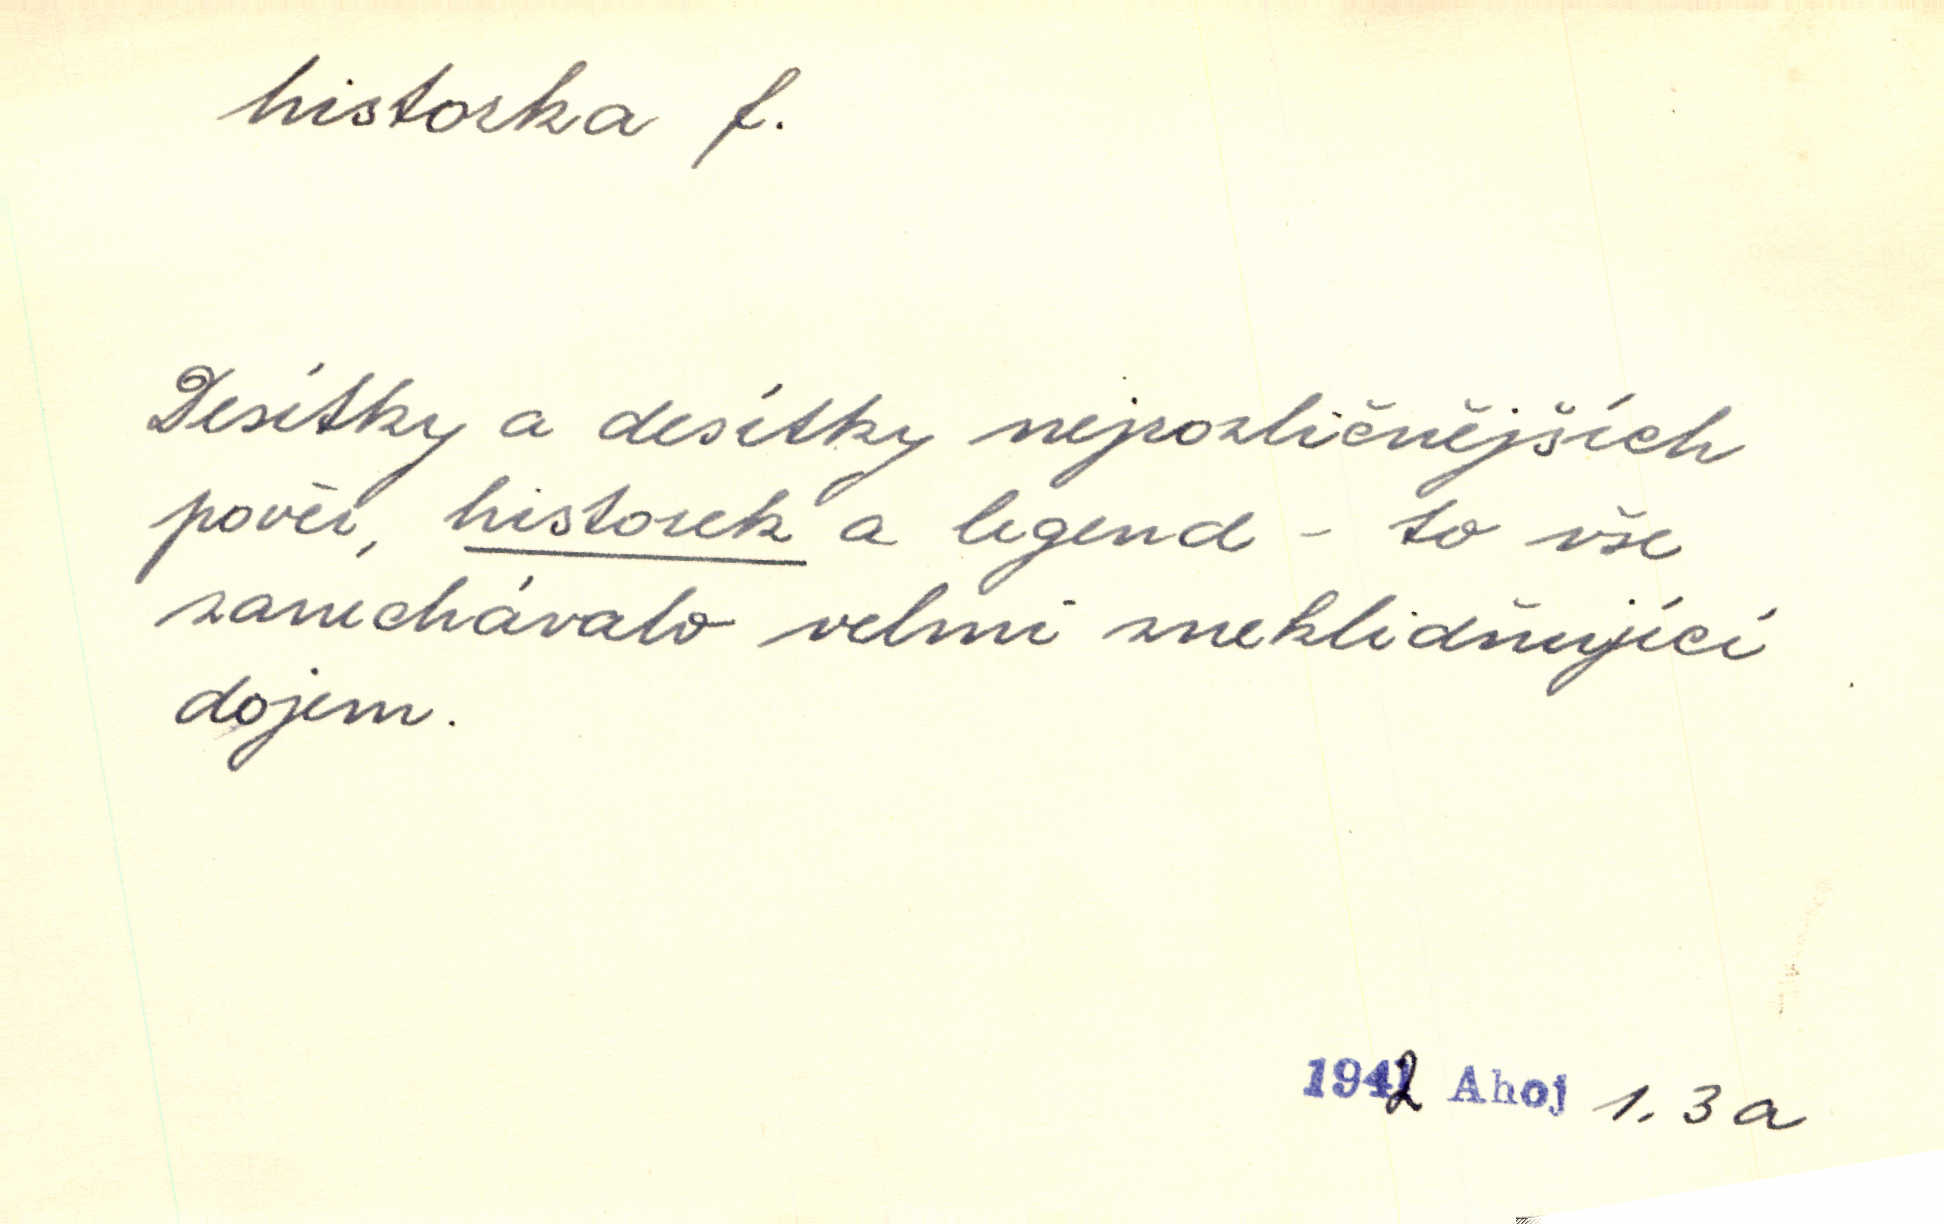 historka f.
Desítky a desítky nejrozličnějších
pověr, historek a legend - to vše
zanechávalo velmi zneklidňující
dojem.
1942 Ahoj 1. 3 a